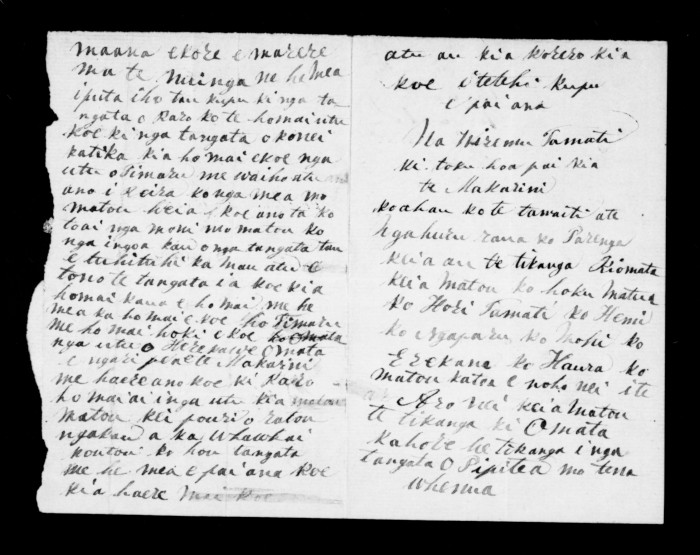 maana ekore e marere
ma te meinga ne he mea
iputa iho tau kupu ki nga ta
ngata o Raro ko te homai utu
koe ki nga tangata o konei
katika kia homai ekoe nga
utu o Timaru me waiho atu
ano i Keira ko nga mea mo
matou heia koe ano ta ko
toai nga moni mo matou ko
nga ingoa kau o nga tangata tau
e tuhituhi ka mau atu e
tono te tangata ia koe kia
homai kaua e homai me he
mea ka homai e koe ho Timaru
me homai hoki e koe ko Omata
nga utu o Herekawe Omata
e ngari pea te Makarini
me haere ano koe ki Raro
homai ai inga utu kia matou
matou kei pouri o ratou
ngakau a ka whawhai
koutou ko hou tangata
me he mea e pai ana koe
kia haere mai koe
atu au kia korero kia
koe i tetehi kupu
e pai ana
Na Wiremu Tamati
ki toku hoa pai kia
te Makarini
koahau ko te tamaiti ate
Ngahuru rana ko Parenga
keia au te tikanga Kiomata
keia matou ko hoku matua
ko Hori Tamati ko Hemi
ko Ngaparu ko Mohi ko
Erekana ko Haura ko
matou katoa e noho nei i te
Aro nei keia matou
te tikanga ki Omata
kahore he tikanga i nga
tangata o Pipitea mo tena
whenua